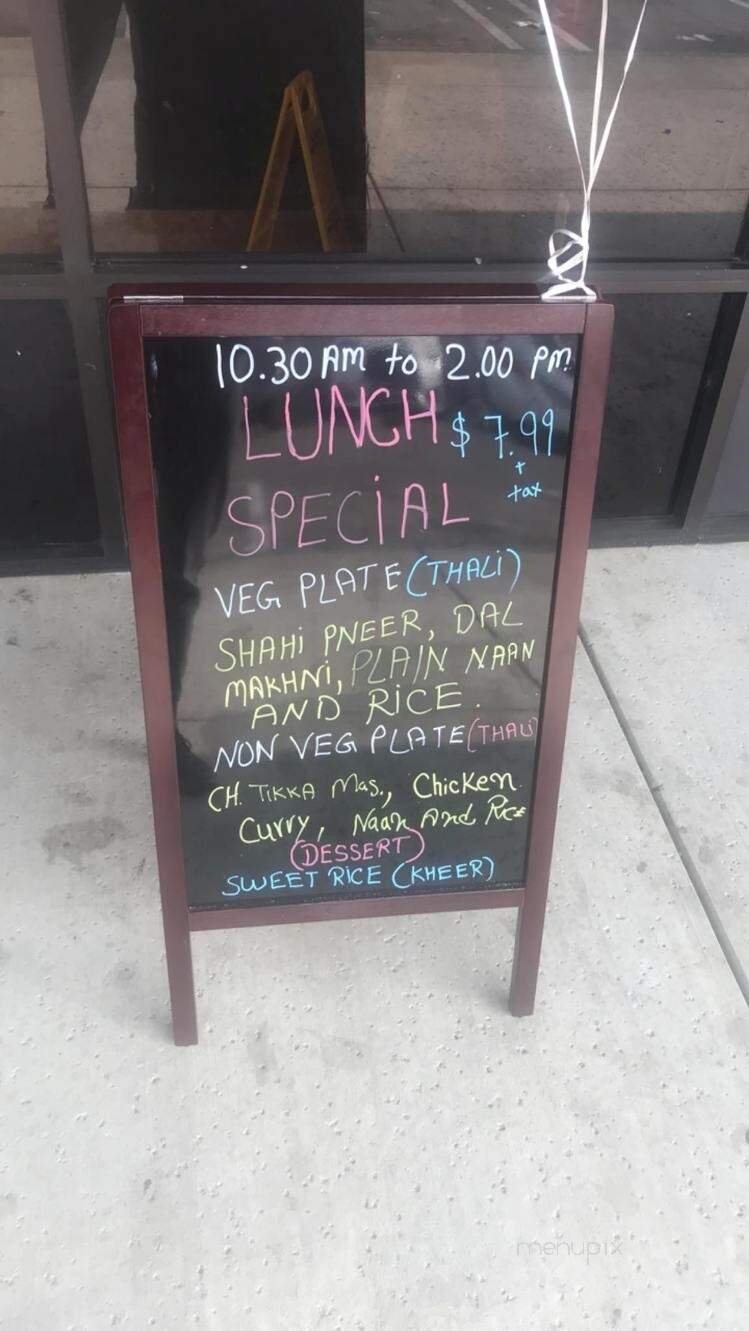 10.30 AM to 2.00 PM
LUNCH $ 7.99
+
tax
SPECiAL
VEG PLATE (THALi)
SHAHi PNEER, DAL
MAKHNi, PLAIN NAAN
AND RiCE.
NON VEG PLATE (THALI)
CH. TIKKA Mas., Chicken
Curry, Naan And Rice
(DESSERT)
SWEET RICE (KHEER)
menupix